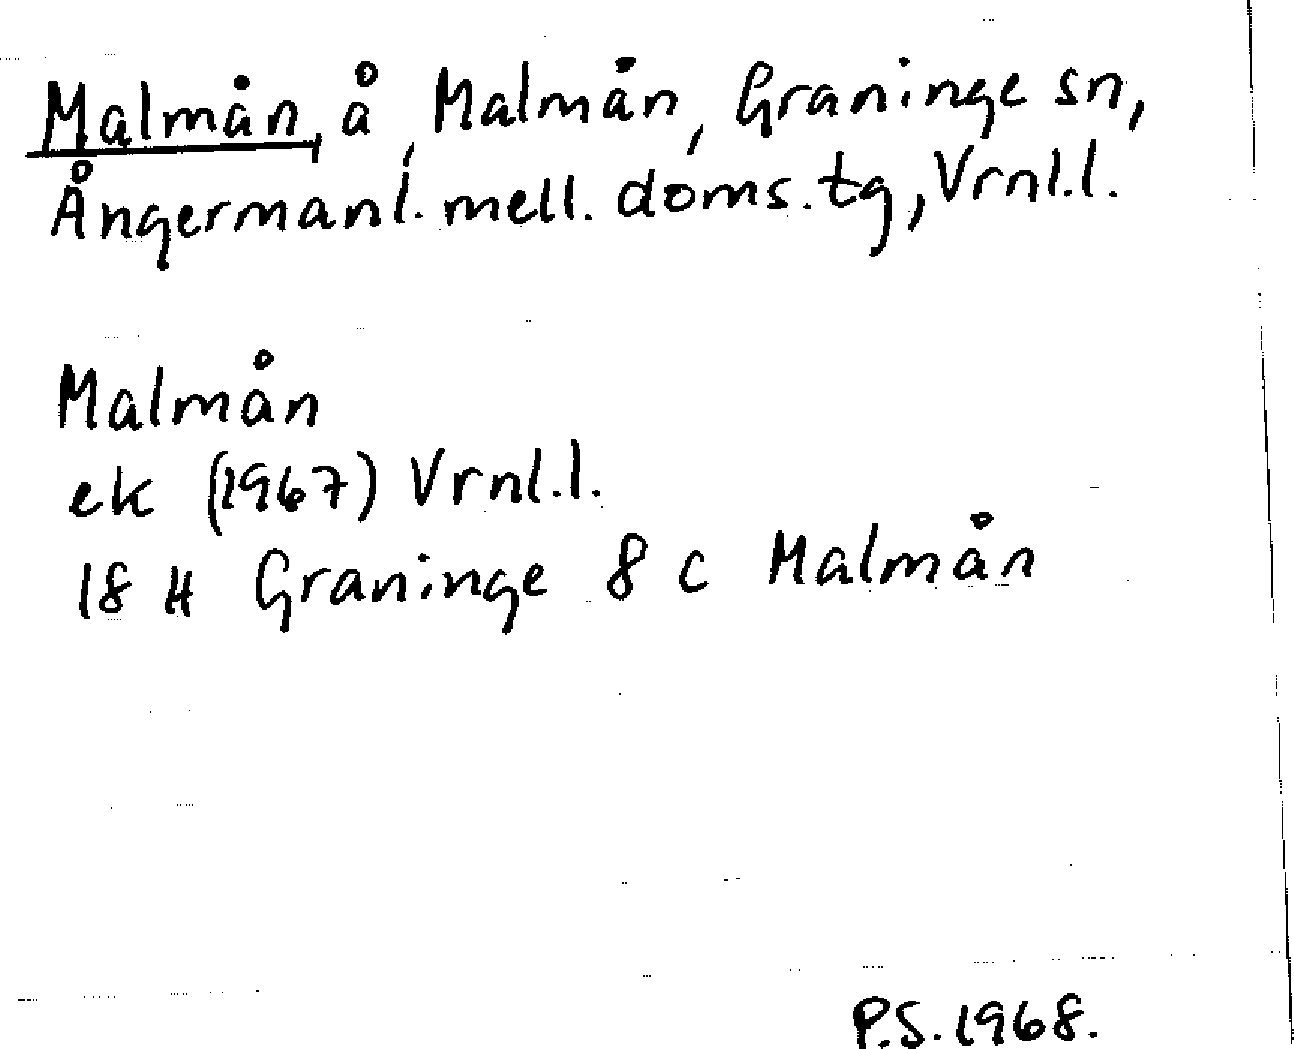 Malmån, å, Malmån, Graninge sn,
Ångermanl. mell. doms. tg, Vrnl.l.
Malmån
ek (1967) Vrnl.l.
18 H Graninge 8 c Malmån
P.S. 1968.